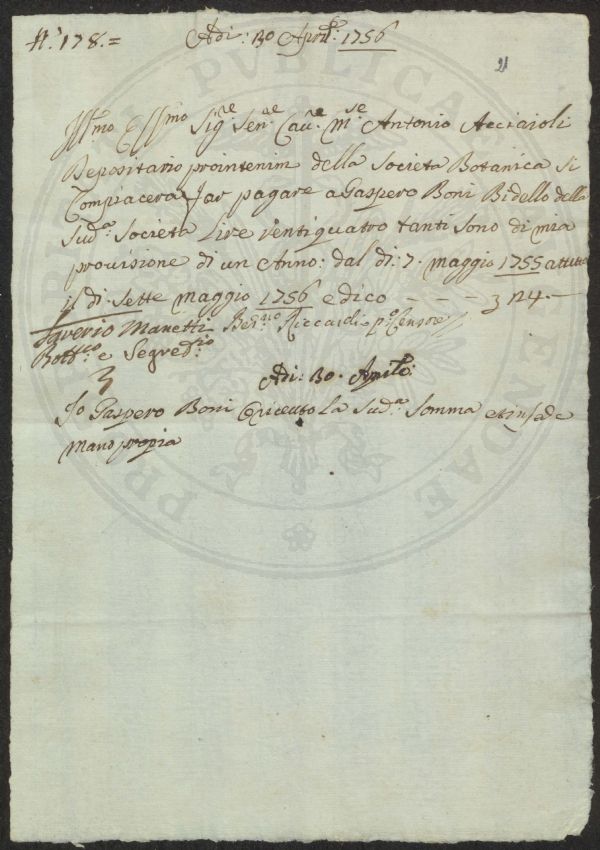 N.° 178.=
Adi: 30 Aprile: 1756
21
Ill.mo Ess.mo Sig.re Sen.re Cau.re M.se Antonio Acciaioli
Depositario prointerim della Societa Botanica si
Compiacera far pagare a Gaspero Boni Bidello della
Sud.a Societa Lire Ventiquatro tanti sono di mia
provisione di un Anno: dal di: 7. maggio 1755 a tutto
il di Sette maggio 1756 e dico - - - 24.-
Saverio Manetti Ber.no Riccardi p.o Censore
Bott.co e Segred.rio
Adi: 30. Aprile:
Io Gaspero Boni O riceuto La Sud.a Somma e in fede
Mano propia